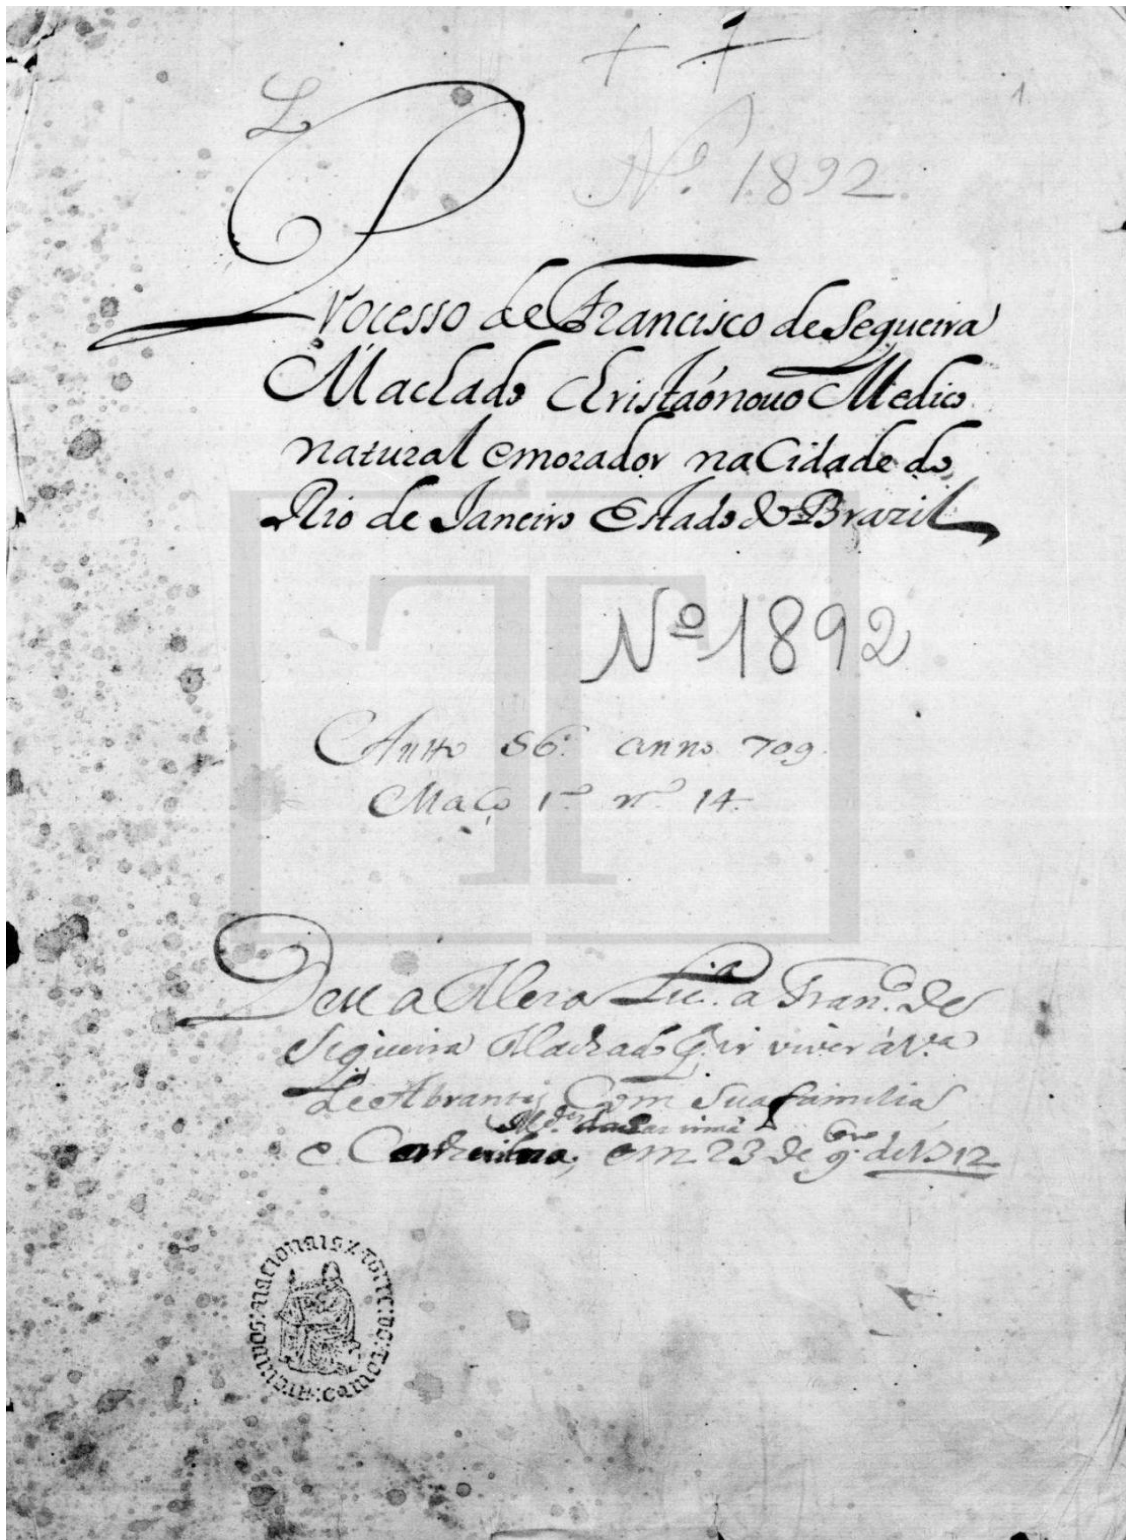 L
1
Nº 1892
Processo de Francisco de Sequeira
Machado Christaõ nouo Medico
natural e morador na Cidade do
Rio de Janeiro Estado do Brazil
Nº 1892
anno 709
Maço 1º nº 14.
Deu a Meza Licª. a Franᶜᵒ. de
Siqueira Machado pª ir viver á Vª
de Abrantes Com sua familia
e em 23 de 9bro de 1712
ARCHIVOS:NACIONAIS:TORRE:DO:TOMBO